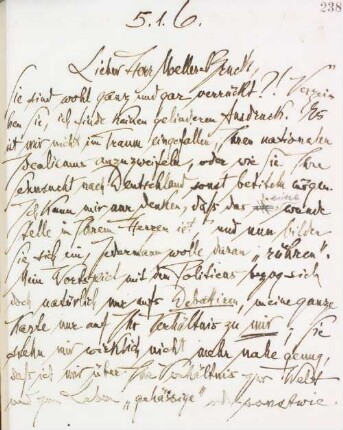 238
5.1.6.
Lieber Herr Moeller-Bruck,
Sie sind wohl ganz und gar verrückt?! Verzei-
hen Sie, ich finde keinen gelinderen Ausdruck. Es
ist mir nicht im Traum eingefallen, Ihren nationalen
Idealismus anzuzweifeln, oder wie Sie Ihre
Sehnsucht nach Deutschland sonst betiteln mögen.
Ich kann mir nur denken, daß das eine wunde
Stelle in Ihrem Herzen ist und nun bilden
Sie sich ein, jedermann wolle daran „rühren“.
Mein Wortspiel mit den Politicus bezog sich
doch natürlich nur aufs Debattiren, meine ganze
Karte nur auf Ihr Verhältnis zu mir; Sie
stehn mir wirklich nicht mehr nahe genug,
daß ich mir über Ihr Verhältnis zur Welt
und zum Leben „gehässige“ oder sonstwie